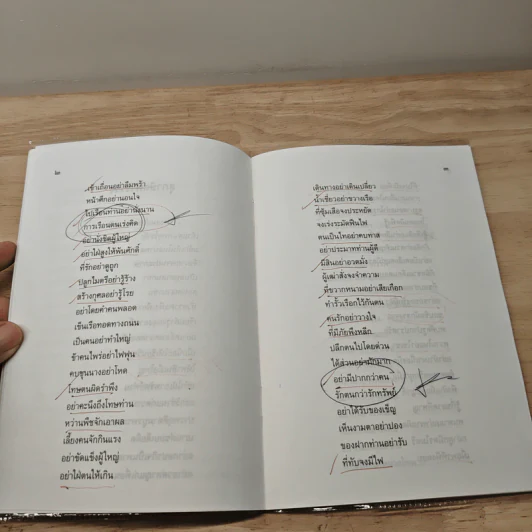 ๒
เข้าเถื่อนอย่าลืมพร้า
หน้าศึกอย่านอนใจ
ไปเรือนท่านอย่านั่งนาน
การเรือนตนเร่งคิด
อย่านั่งชิดผู้ใหญ่
อย่าใฝ่สูงให้พ้นศักดิ์
ที่รักอย่าดูถูก
ปลูกไมตรีอย่ารู้ร้าง
สร้างกุศลอย่ารู้โรย
อย่าโดยคำคนพลอด
เข็นเรือทอดทางถนน
เป็นคนอย่าทำใหญ่
ข้าคนไพร่อย่าไฟฟุน
คบขุนนางอย่าโหด
โทษตนผิดรำพึง
อย่าคะนึงถึงโทษท่าน
หว่านพืชจักเอาผล
เลี้ยงคนจักกินแรง
อย่าขัดแข็งผู้ใหญ่
อย่าใฝ่ตนให้เกิน
๓
เดินทางอย่าเดินเปลี่ยว
น้ำเชี่ยวอย่าขวางเรือ
ที่ซุ้มเสือจงประหยัด
จงเร่งระมัดฟืนไฟ
ตนเป็นไทอย่าคบทาส
อย่าประมาทท่านผู้ดี
มีสินอย่าอวดมั่ง
ผู้เฒ่าสั่งจงจำความ
ที่ขวากหนามอย่าเสียเกือก
ทำรั้วเรือกไว้กันตน
คนรักอย่าวางใจ
ที่มีภัยพึงหลีก
ปลีกตนไปโดยด่วน
ได้ส่วนอย่ามักมาก
อย่ามีปากกว่าคน
รักตนกว่ารักทรัพย์
อย่าได้รับของเข็ญ
เห็นงามตาอย่าปอง
ของฝากท่านอย่ารับ
ที่ทับจงมีไฟ